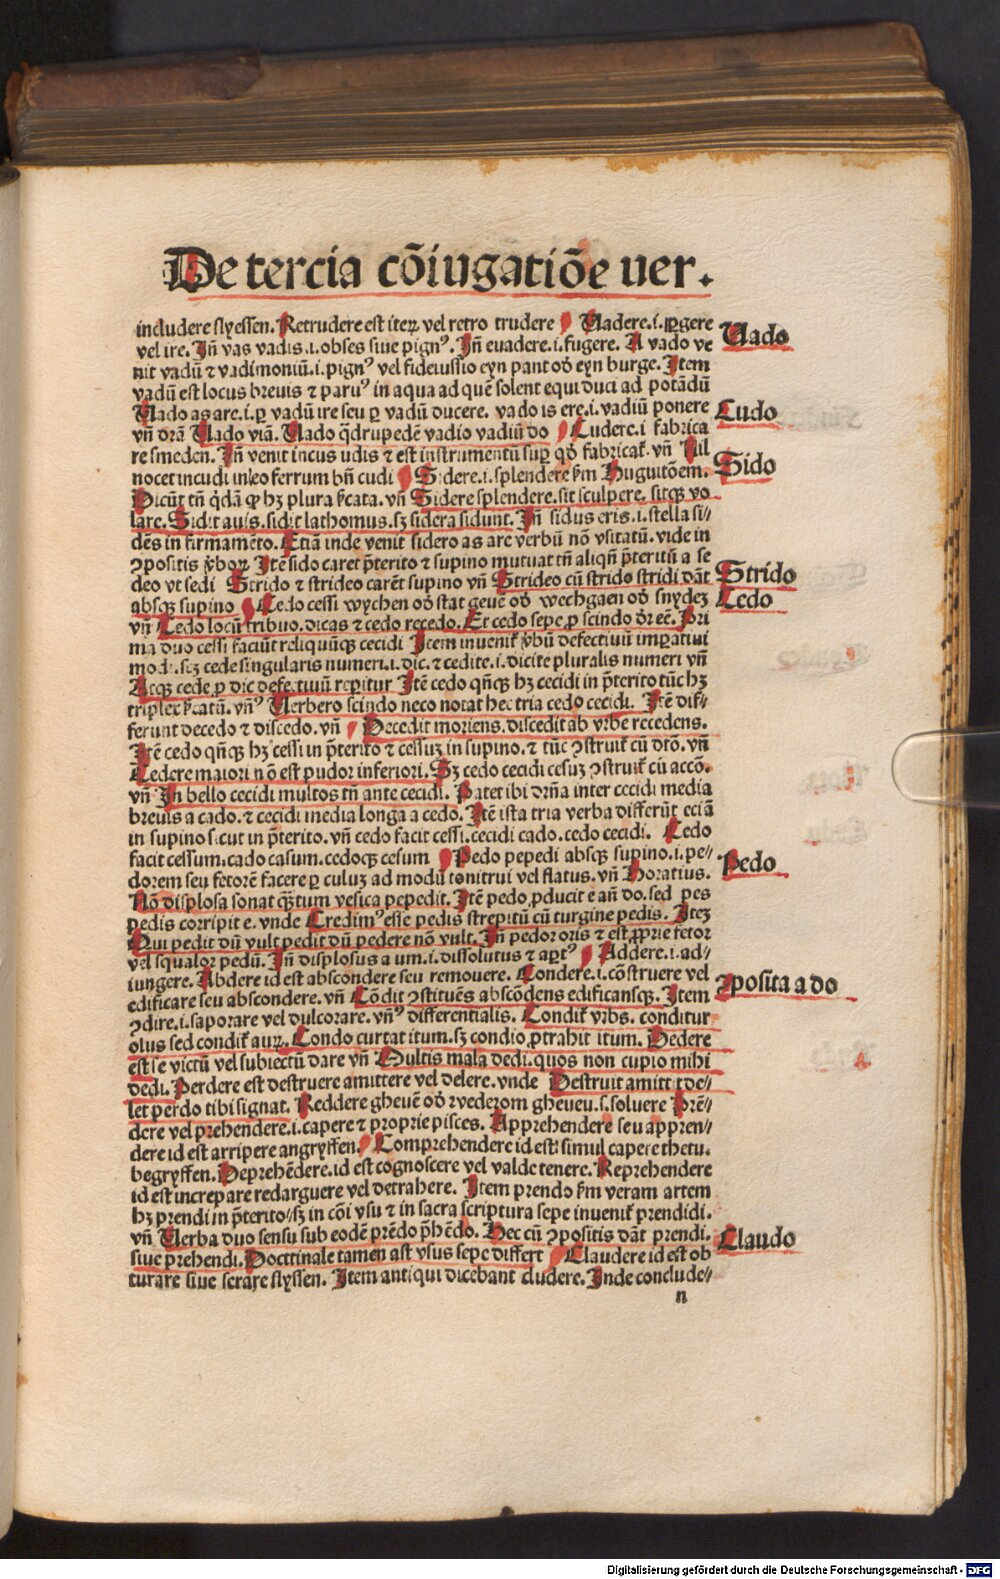 De tercia cõiugatiõe uer.
includere slyessen. Retrudere est iterꝝ vel retro trudere Uadere.i.ꝑgere
Uado
vel ire. Jñ vas vadis.i.obses siue pignꝰ. Jñ euadere.i.fugere. A vado ve
nit vadũ ⁊ vadimoniũ.i.pignꝰ vel fideiussio eyn pant oď eyn burge. Jtem
vadũ est locus breuis ⁊ paruꝰ in aqua ad quẽ solent equi duci ad potãdũ
Uado as are.i.ꝑ vadũ ire seu ꝑ vadũ ducere. vado is ere.i.vadiũ ponere
Cudo
vñ dr̃a Uado viã. Uado q̃drupedẽ vadio vadiũ do Cudere.i fabrica
re smeden. Jñ venit incus udis ⁊ est instrumentũ suꝑ qď fabricat̃. vñ Nil
Sido
nocet incudi in leo ferrum bñ cudi Sidere.i.splendere ẜm Huguitõem.
Dicũt tñ q̃dã ꝙ hꝫ plura ẜcata. vñ Sidere splendere. sit sculpere. sitqꝫ vo
lare. Sidit auis. sidit lathomus. sꝫ sidera sidunt. Jñ sidus eris.i.stella si⸗
dẽs in firmamẽto. Etiã inde venit sidero as are verbũ nõ vsitatũ. vide in
ꝯpositis v̓boꝝ Jtẽ sido caret p̃terito ⁊ supino mutuat tñ aliqñ p̃teritũ a se
deo vt sedi Strido ⁊ strideo carẽt supino vñ Strideo cũ strido stridi dãt
Strido
absqꝫ supino Cedo cessi wychen oď stat geuẽ oď wechgaen oď snydeꝫ
Cedo
vñ Cedo locũ tribuo. dicas ⁊ cedo recedo. Et cedo sepe ꝓ scindo dr̃ eẽ. Pri
ma duo cessi faciũt reliquũqꝫ cecidi Jtem inuenit̃ v̓bũ defectiuũ imꝑatiui
modi. scꝫ cede singularis numeri.i.dic. ⁊ cedite.i.dicite pluralis numeri vñ
Atqꝫ cede ꝓ dic defectiuũ reꝑitur Jtẽ cedo qñqꝫ hꝫ cecidi in p̃terito tũc hꝫ
triplex ẜcatũ. vñꝰ Uerbero scindo neco notat hec tria cedo cecidi. Jtẽ dif⸗
ferunt decedo ⁊ discedo. vñ Decedit moriens. discedit ab vrbe recedens.
Jtẽ cedo qñqꝫ hꝫ cessi in p̃terito ⁊ cessuꝫ in supino. ⁊ tũc ꝯstruit̃ cũ dtõ. vñ
Cedere maiori nõ est pudor inferiori. Sꝫ cedo cecidi cesuꝫ ꝯstruit̃ cũ accõ.
vñ Jn bello cecidi multos tñ ante cecidi. Patet ibi dr̃ña inter cecidi media
breuis a cado. ⁊ cecidi media longa a cedo. Jtẽ ista tria verba differũt eciã
in supino sicut in p̃terito. vñ cedo facit cessi. cecidi cado. cedo cecidi. Cedo
facit cessum. cado casum. cedoqꝫ cesum Pedo pepedi absqꝫ supino.i.pe⸗
Pedo
dorem seu fetorẽ facere ꝑ culuꝫ ad modũ tonitrui vel flatus. vñ Horatius.
Nõ displosa sonat q̃ꝫtum vesica pepedit. Jtẽ pedo ꝓducit e añ do. sed pes
pedis corripit e. vnde Credimꝰ esse pedis strepitũ cũ turgine pedis. Jteꝫ
Qui pedit dũ vult pedit dũ pedere nõ vult. Jñ pedor oris ⁊ est ꝓprie fetor
vel squalor pedũ. Jñ displosus a um.i.dissolutus ⁊ aꝑtꝰ Addere.i.ad⸗
iungere. Abdere id est abscondere seu remouere. Condere.i.cõstruere vel
ꝯposita a do
edificare seu abscondere. vñ Cõdit ꝯstituẽs abscõdens edificansqꝫ. Jtem
ꝯdire.i.saporare vel dulcorare. vñꝰ differentialis. Condit̃ vrbs. conditur
olus sed condit̃ auꝝ. Condo curtat itum. sꝫ condio ꝓtrahit itum. Dedere
est se victũ vel subiectũ dare vñ Multis mala dedi. quos non cupio mihi
dedi. Perdere est destruere amittere vel delere. vnde Destruit amittit de⸗
let perdo tibi signat. Reddere gheuẽ oď wederom gheueu.s.soluere Prẽ⸗
dere vel prehendere.i.capere ⁊ proprie pisces. Apprehendere seu appren⸗
dere id est arripere angryffen. Comprehendere id est simul capere thetu.
begryffen. Deprehẽdere. id est cognoscere vel valde tenere. Reprehendere
id est increpare redarguere vel detrahere. Jtem prendo ẜm veram artem
hꝫ prendi in p̃terito/sꝫ in cõi vsu ⁊ in sacra scriptura sepe inuenit̃ prendidi.
vñ Uerba duo sensu sub eodẽ prẽdo p̃hẽdo. Hec cũ ꝯpositis dãt prendi.
Claudo
siue prehendi. Docttinale tamen ast vsus sepe differt Claudere id est ob
turare siue serare slyssen. Jtem antiqui dicebant cludere. Jnde conclude⸗
n
Digitalisierung gefördert durch die Deutsche Forschungsgemeinschaft - DFG